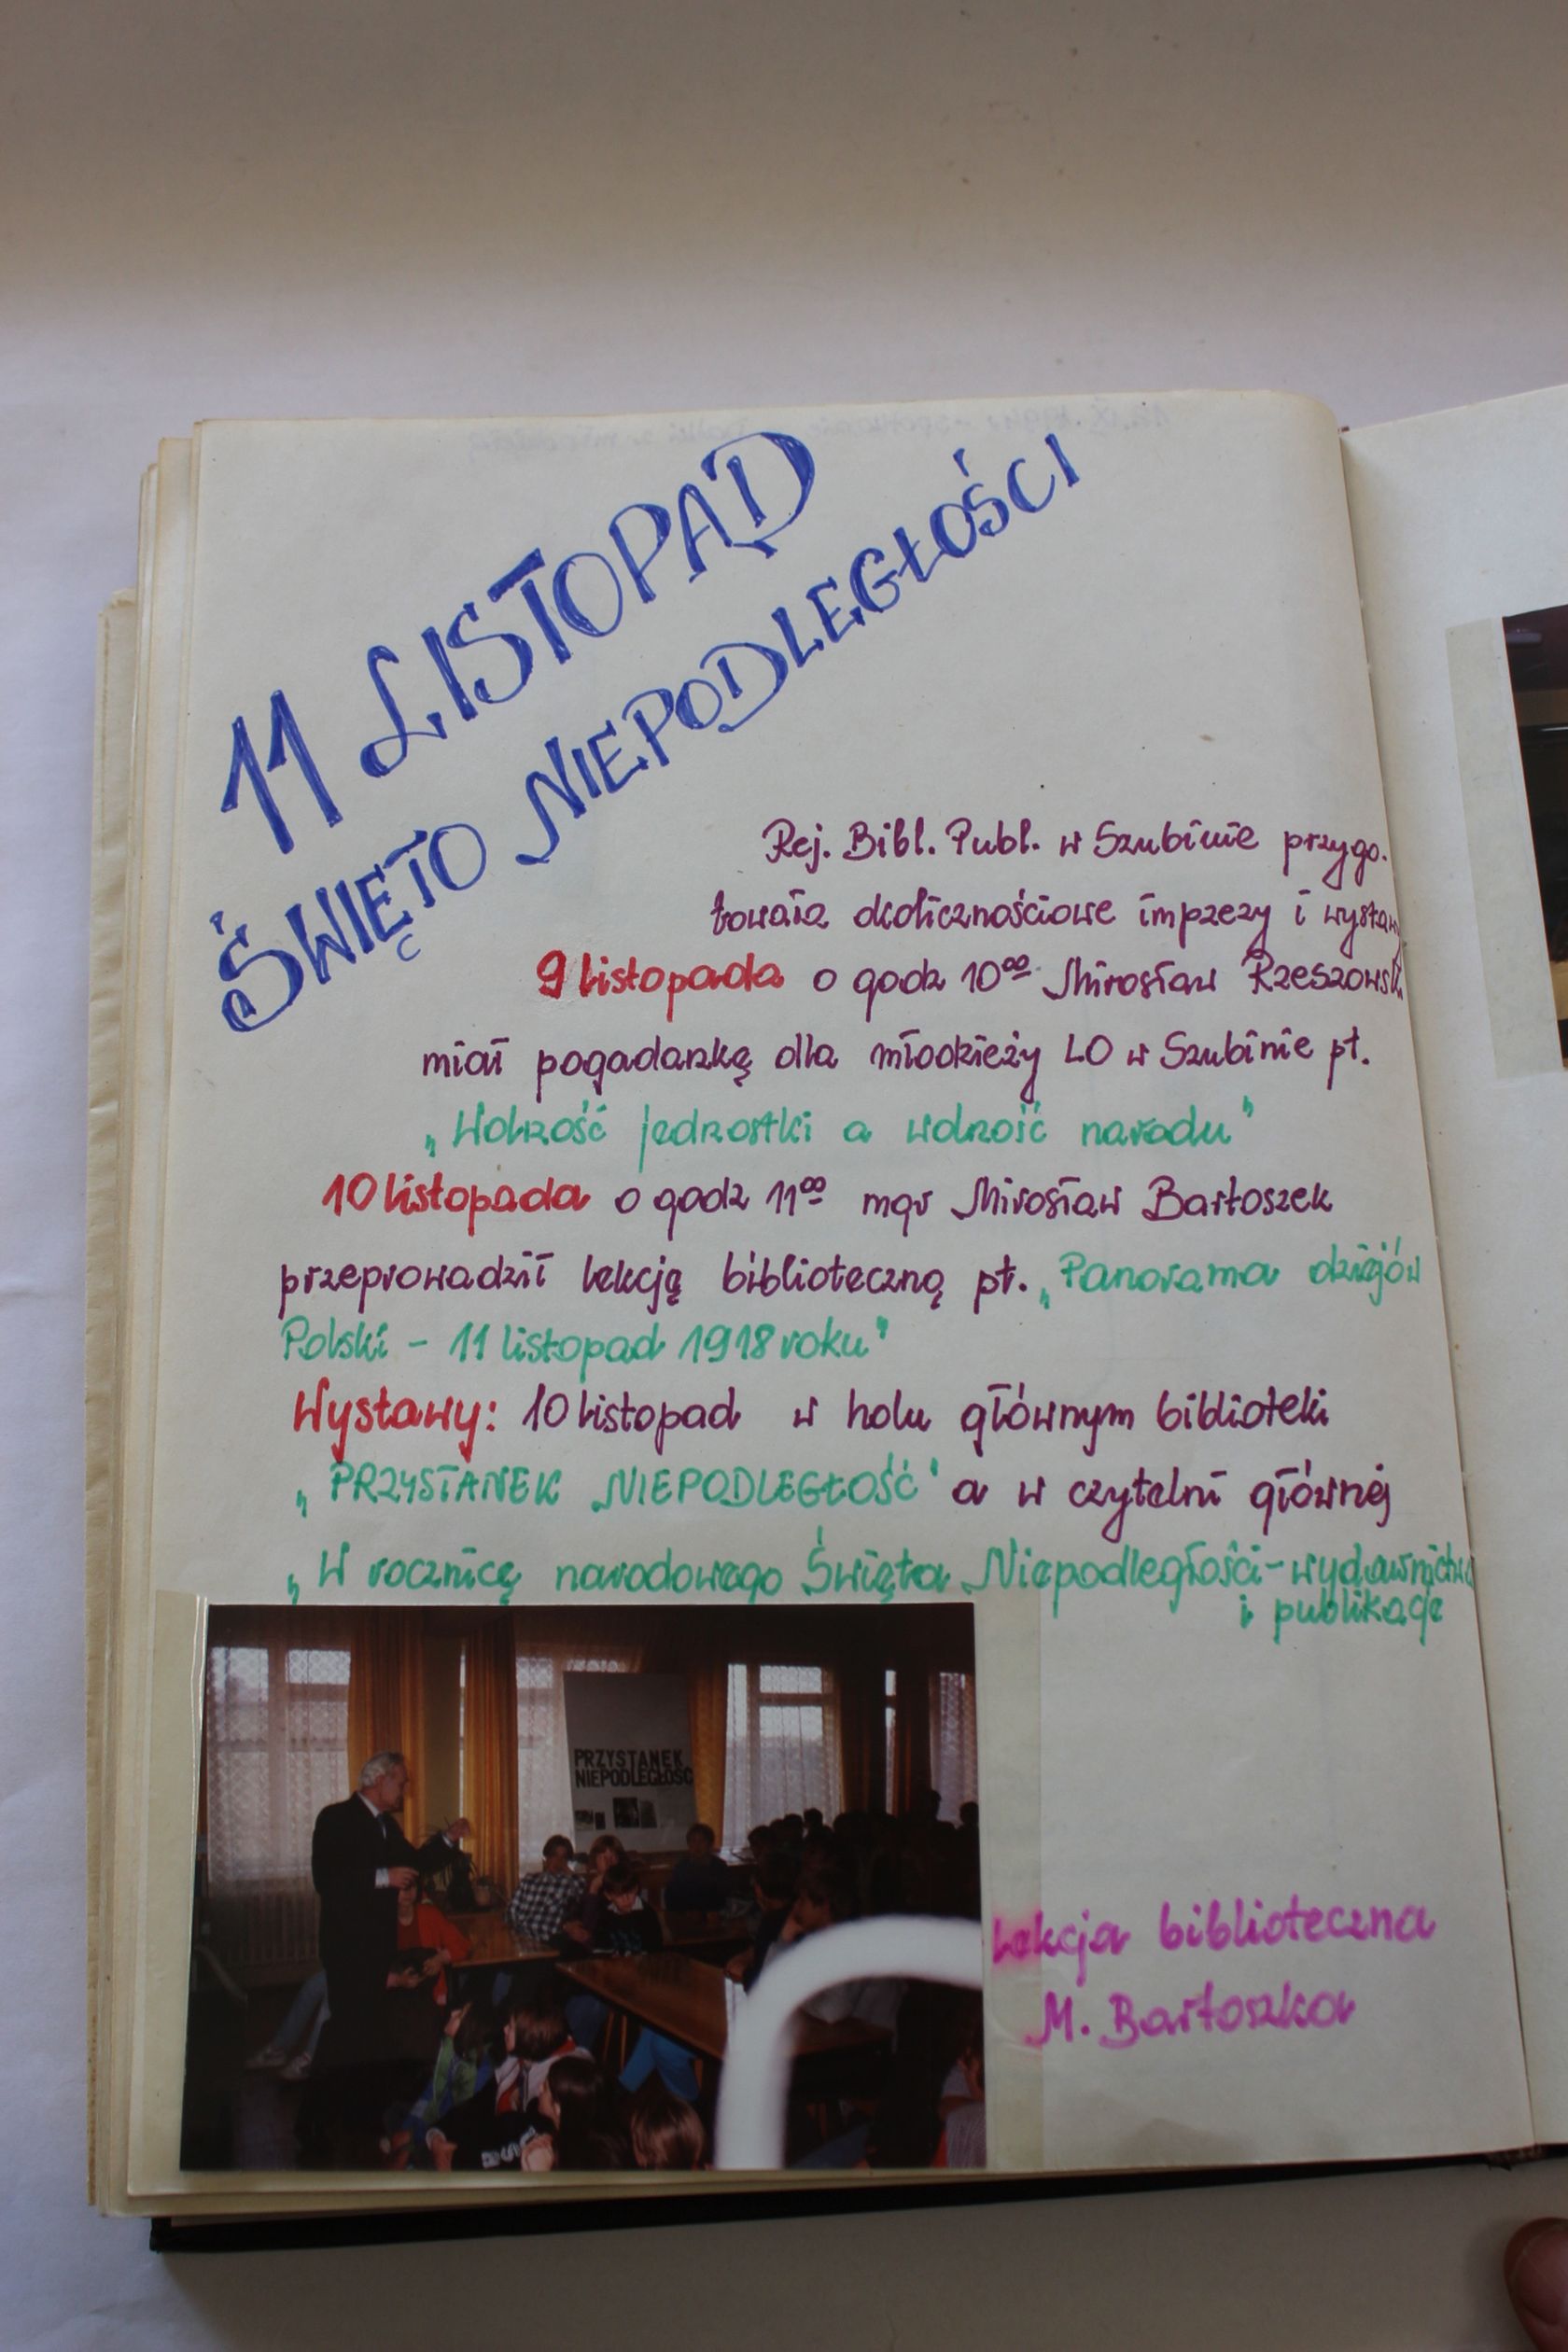 11 LISTOPAD
ŚWIĘTO NIEPODLEGŁOŚCI
Rej. Bibl. Publ. w Szubinie przygo-
towała okolicznościowe imprezy i wystawy
9 listopada o godz 10⁰⁰ Mirosław Rzeszowski
miał pogadankę dla młodzieży LO w Szubinie pt.
„Wolność jednostki a wolność narodu"
10 listopada o godz 11⁰⁰ mgr Mirosław Bartoszek
przeprowadził lekcję biblioteczną pt. „Panorama dziejów
Polski - 11 listopad 1918 roku"
Wystawy: 10 listopad w holu głównym biblioteki
„PRZYSTANEK NIEPODLEGŁOŚĆ" a w czytelni głównej
„W rocznicę narodowego Święta Niepodległości - wydawnictwa
i publikacje
PRZYSTANEK
NIEPODLEGŁOŚĆ
Lekcja biblioteczna
M. Bartoszka